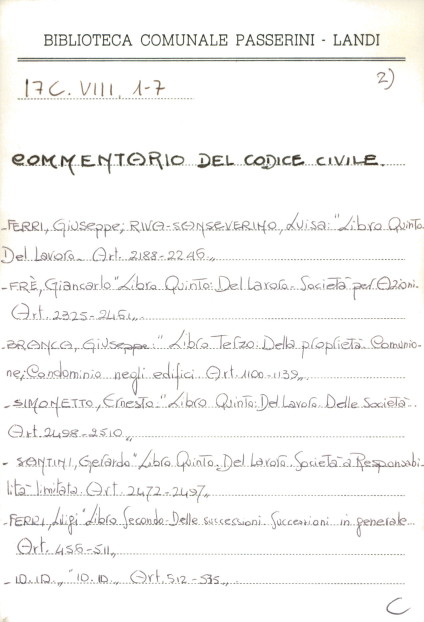 BIBLIOTECA COMUNALE PASSERINI - LANDI
17C. VIII. 1-7
2)
COMMENTARIO DEL CODICE CIVILE.
-FERRI, Giuseppe; RIVA-SANSEVERINO, Luisa: "Libro Quinto
Del Lavoro. Art. 2188-2246„
-FRÈ, Giancarlo "Libro Quinto: Del Lavoro. Società per Azioni.
Art. 2325-2461„.
-BRANCA, Giuseppe: "Libro Terzo: Della proprietà. Comunio-
ne, Condominio negli edifici. Art. 1100-1139„
- SIMONETTO, Ernesto: "Libro Quinto: Del Lavoro. Delle Società.
Art. 2498-2510„
- SANTINI, Gerardo "Libro Quinto. Del Lavoro. Società a Responsabi
lità limitata. Art. 2472-2497„
-FERRI, Luigi "Libro Secondo. Delle successioni. Successioni in generale
Art. 456-511„
- ID. ID. „ "ID. ID. „ Art. 512-535„
C